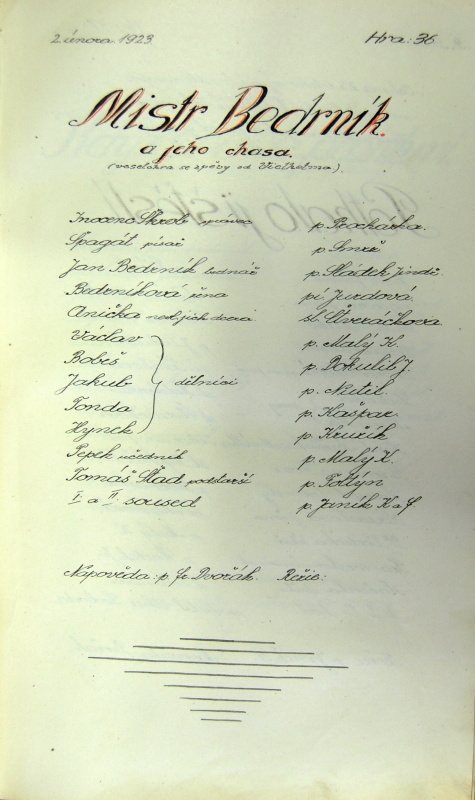 2 února 1923.
Hra: 36
Mistr Bedrník.
a jeho chasa.
(veselohra se zpěvy od Wilhelma).
Inocenc Škrob správce p. Procházka.
Spagát písař p. Smrž
Jan Bedrník bednář p. Sládek Jindř.
Bedrníková žena pí. Jurdová
Anička její dcera sl. Stveráčkova
Václav p. Malý K.
Bobeš p. Dokulil J.
Jakub dělníci p. Nutil.
Tonda p. Kašpar.
Hynek p. Kružík
Pepek učedník p. Malý X.
Tomáš Slad podstarší p. Foltýn
I a II soused p. Janík K a F
Nápověda: p. fr. Dvořák. Režie: